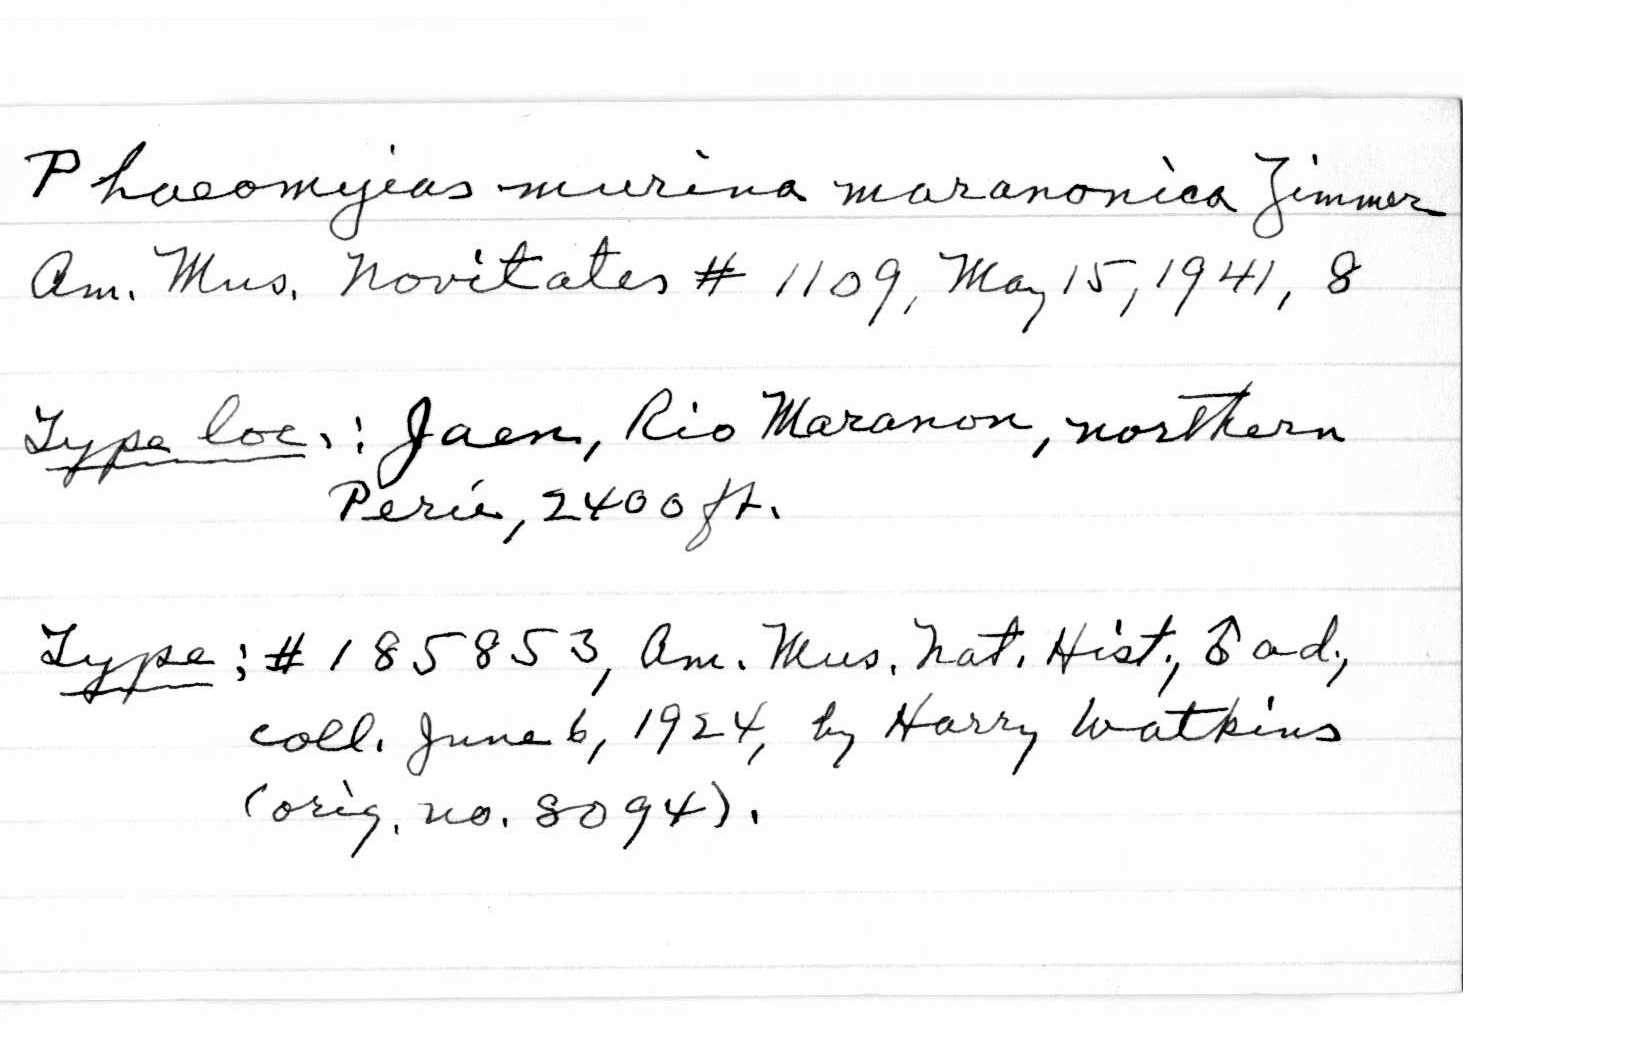 Phaeomyias murina maranonica Zimmer
Am. Mus. Novitates # 1109, May 15, 1941, 8
Type loc.: Jaen, Rio Maranon, northern
Perú, 2400 ft.
Type: # 185853, Am. Mus. Nat. Hist., ♂ ad.,
coll. June 6, 1924, by Harry Watkins
(orig. no. 8094).